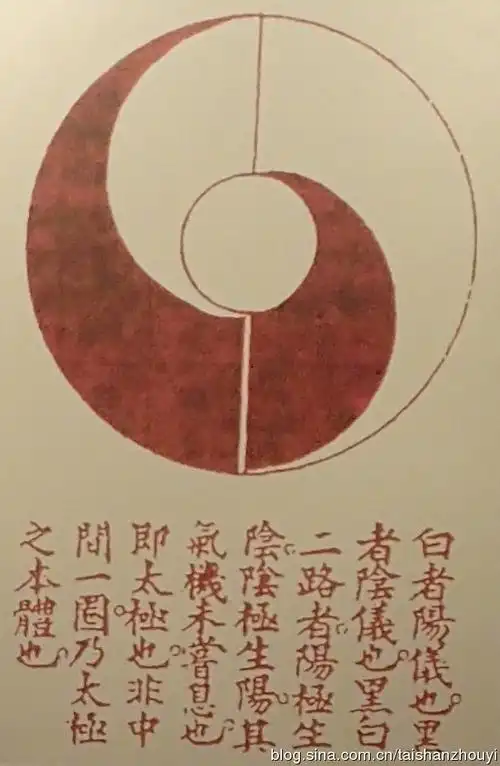 白者陽儀也。黑
者陰儀也。黑白
二路者。陽極生
陰。陰極生陽。其
氣機未嘗息也。
即太極也。非中
間一圈乃太極
之本體也。
blog.sina.com.cn/taishanzhouyi